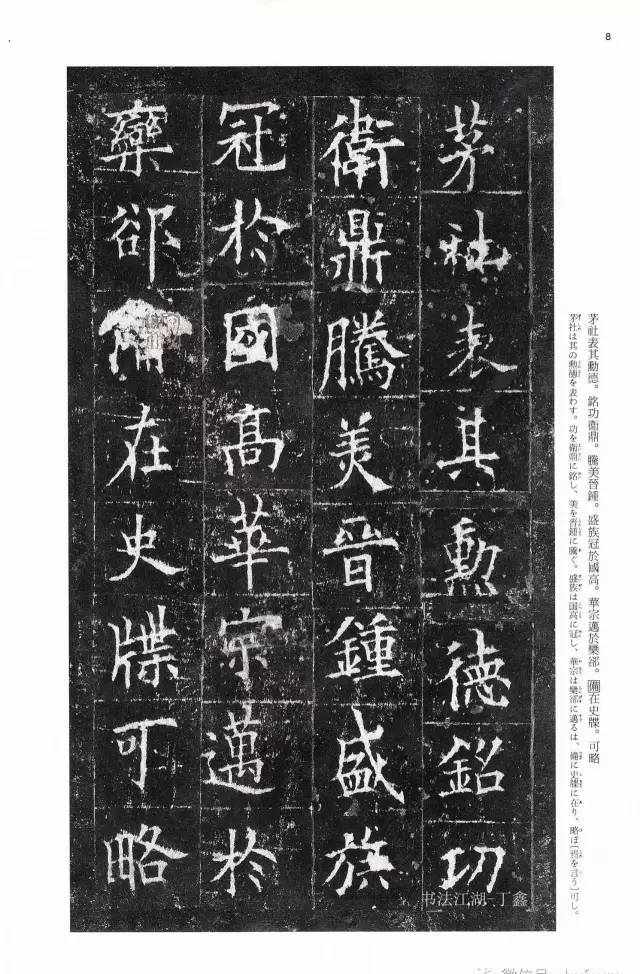 8
茅社表其勳德銘功
衛鼎騰美晉鍾盛族
冠於國高華宗邁於
欒郤備在史牒可略
茅社表其勳德。銘功衛鼎。騰美晉鍾。盛族冠於國高。華宗邁於欒郤。備在史牒。可略
茅社は其の勳德を表わす。功を衛鼎に銘し、美を晉鍾に騰ぐ。盛族は国高に冠し、華宗は欒郤に邁るは、備に史牒に在り、略ぼ[焉を言う]可し。
书法江湖-丁鑫